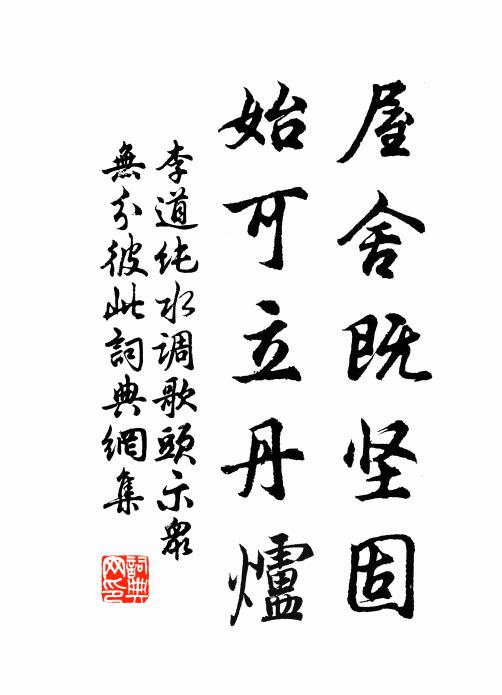 屋舍既坚固
始可立丹爐
李道纯水调歌頭示衆
無分彼此詞典網集
詞典网印